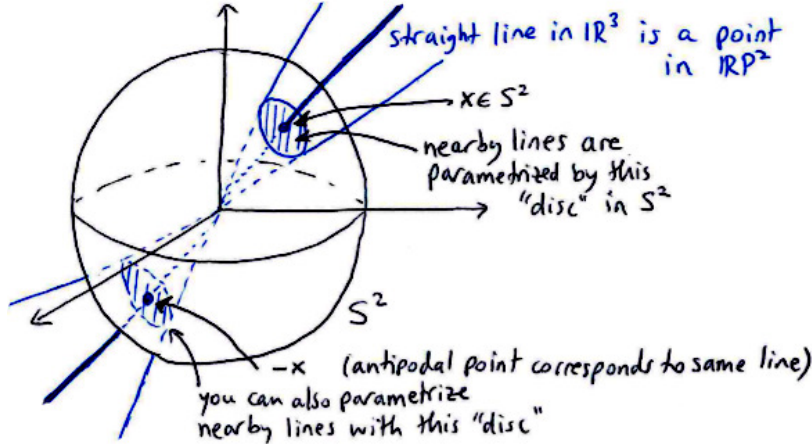 straight line in IR³ is a point
in IRP²
x ∈ S²
nearby lines are
parametrized by this
"disc" in S²
S²
-x (antipodal point corresponds to same line)
you can also parametrize
nearby lines with this "disc"